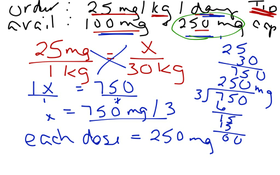 order: 25 mg/kg/day TID
avail: 100 mg 250 mg cap
25 mg = x
1 kg 30 kg
1x = 750
1
x = 750 mg/3
each dose = 250 mg
25
30
750
250 mg
3)750
6
15
15
00